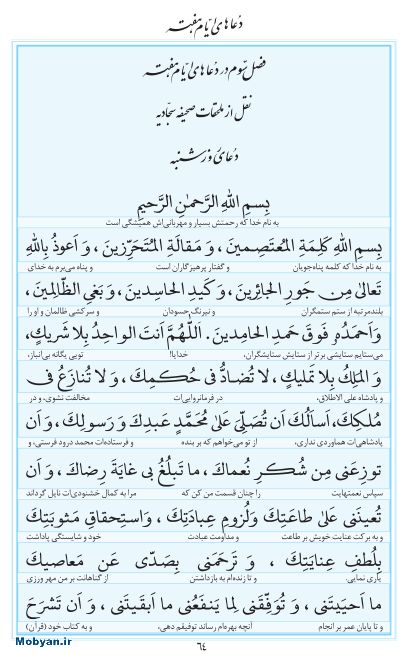 دعاهای ایّام هفته
فصل سّوم در دعاهای ایّام هفته
نقل از ملحقات صحیفه سجّادیه
دعای روز شنبه
بِسمِ اللهِ الرَّحمٰنِ الرَّحیمِ
به نام خدا که رحمتش بسیار و مهربانی‌اش همیشگی است
بِسمِ اللهِ کَلِمَةِ المُعتَصِمینَ، وَ مَقالَةِ المُتَحَرِّزینَ، وَ اَعوذُ بِاللهِ
به نام خدا که کلمه پناه‌جویان و گفتار پرهیزگاران است و پناه می‌برم به خدای
تَعالیٰ مِن جَورِ الجائِرینَ، وَ کَیدِ الحاسِدینَ، وَ بَغیِ الظّالِمینَ،
بلندمرتبه از ستم ستمگران و نیرنگ حسودان و سرکشی ظالمان و او را
وَ اَحمَدُهُ فَوقَ حَمدِ الحامِدینَ. اَللّٰهُمَّ اَنتَ الواحِدُ بِلا شَریكٍ،
می‌ستایم ستایشی برتر از ستایش ستایشگران، خدایا! تویی یگانه بی‌انباز،
وَ المَلِكُ بِلا تَملیكٍ، لا تُضادُّ فی حُکمِكَ، وَ لا تُنازَعُ فی
و پادشاه علی الاطلاق، در فرمانروایی‌ات مخالفت نشوی، و در
مُلکِكَ، اَسأَلُكَ اَن تُصَلِّیَ عَلیٰ مُحَمَّدٍ عَبدِكَ وَ رَسولِكَ، وَ اَن
پادشاهی‌ات هماوردی نداری، از تو می‌خواهم که بر بنده و فرستاده‌ات محمد درود فرستی، و
توزِعَنی مِن شُکرِ نُعماكَ، ما تَبلُغُ بی غایَةَ رِضاكَ، وَ اَن
سپاس نعمتهایت را چنان قسمت من کن که مرا به کمال خشنودی‌ات نایل گرداند
تُعینَنی عَلیٰ طاعَتِكَ وَ لُزومِ عِبادَتِكَ، وَ استِحقاقِ مَثوبَتِكَ
و به برکت عنایت خویش بر طاعت و مداومت عبادت خود و شایستگی پاداشت
بِلُطفِ عِنایَتِكَ، وَ تَرحَمَنی بِصَدّی عَن مَعاصیكَ
یاری نمایی، و تا زنده‌ام به بازداشتن از گناهانت بر من مهر ورزی
ما اَحیَیتَنی، وَ تُوَفِّقَنی لِما یَنفَعُنی ما اَبقَیتَنی، وَ اَن تَشرَحَ
و تا پایان عمر بر انجام آنچه بهره‌ام رساند توفیقم دهی، و به کتاب خود (قرآن)
Mobyan.ir
٦٤